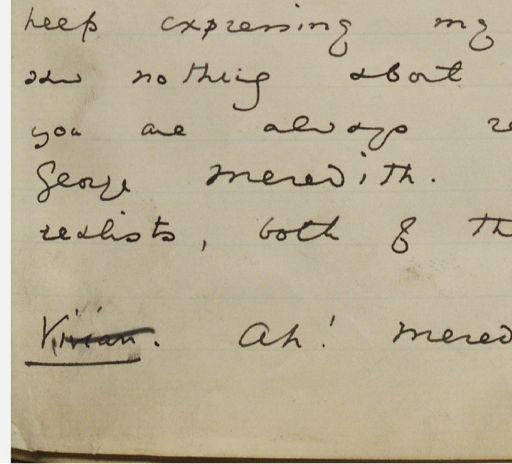 keep expressing my
saw nothing about
you are always re
George Meredith.
realists, both of th
Vivian. Ah! Mered